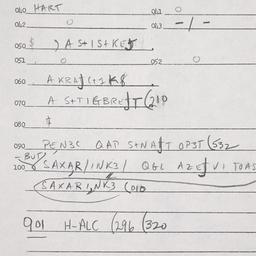 040 HART 041 O
042 O 043 - / -
050 $ ) A S+IS+KET
051 O 052 O
060 A KRAJ C+1 K8
070 A S+TIGBREJT (210
080 $
090 PEN3C QAP S+NAJT OP3T (532
- BUT
100 SAXAR/INK3/ QGL AZEJ VI TOAS
SAXARINK3 (010
901 H-ALC (296 (320